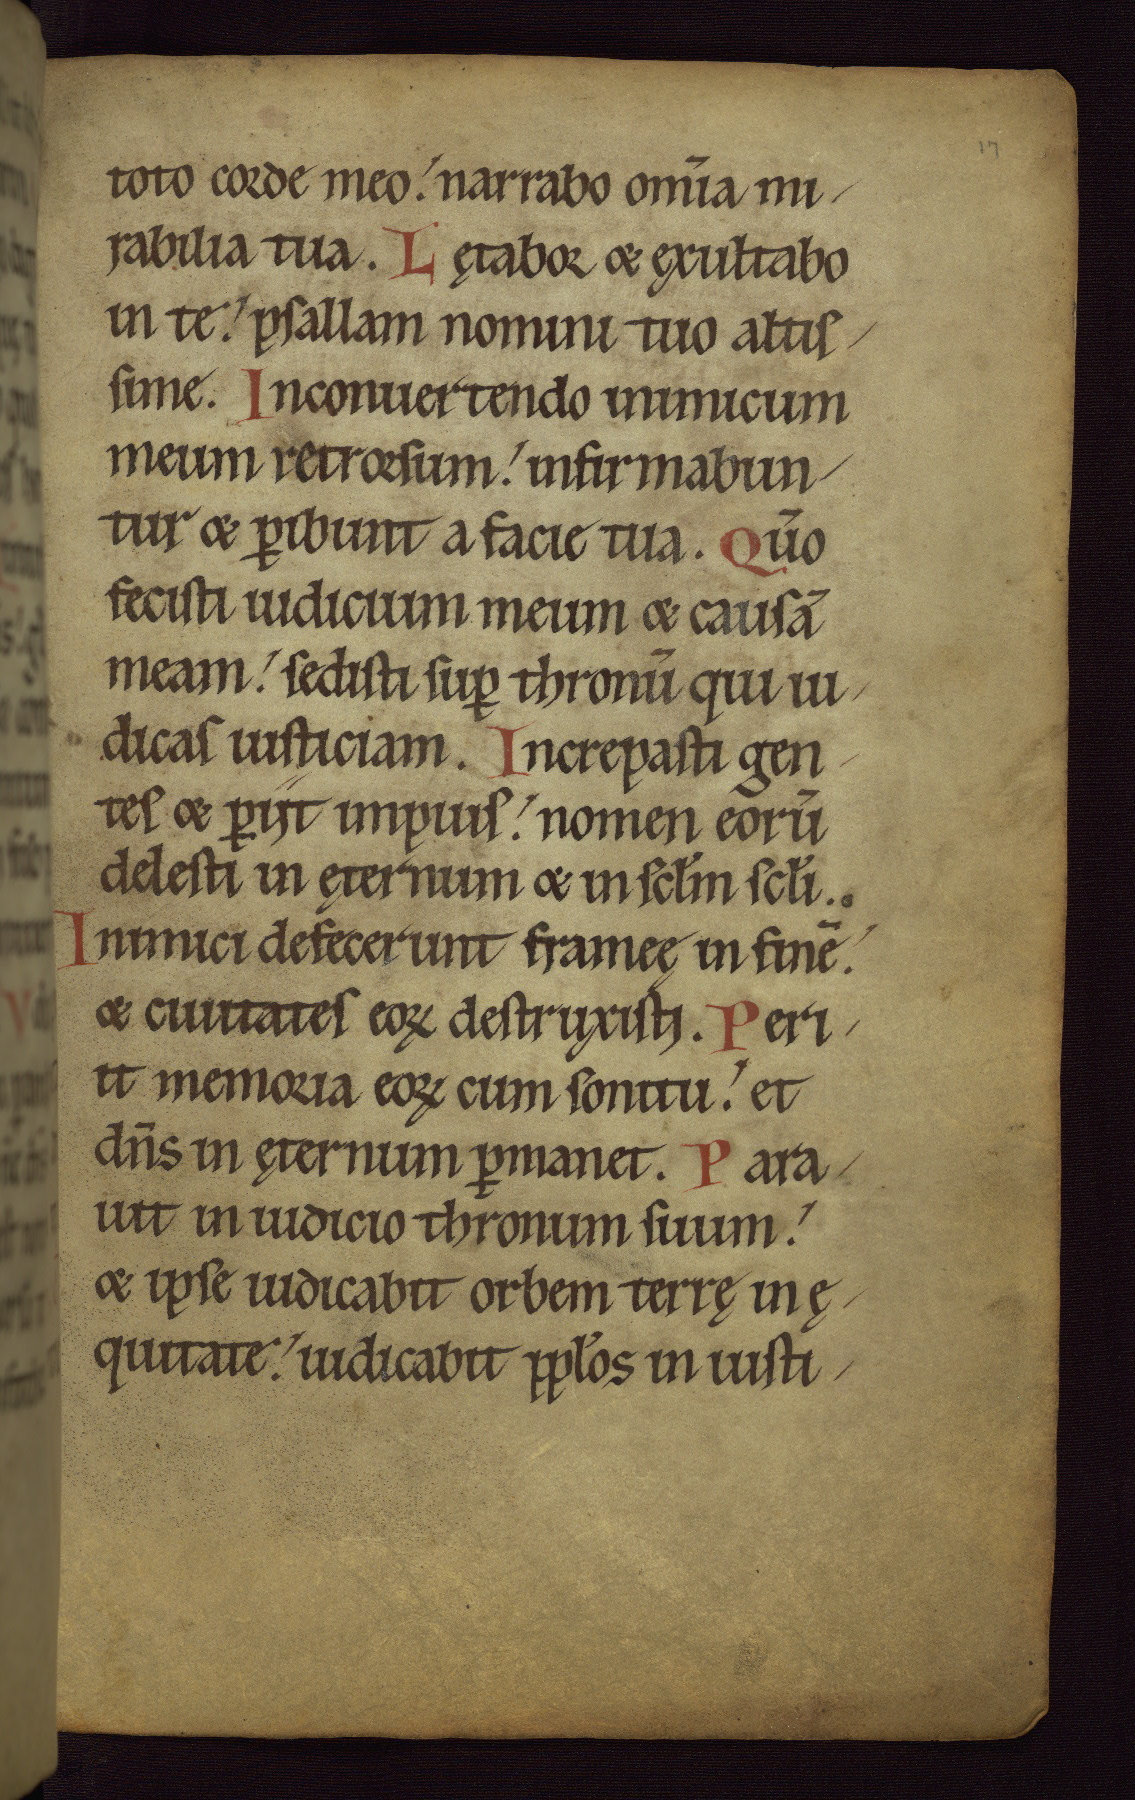 17
toto corde meo! narrabo om̄ia mi-
rabilia tua. Lętabor & ęxultabo
in te! psallam nomini tuo altis-
sime. Inconuertendo inimicum
meum retrorsum! infirmabun-
tur & ꝑibunt a facie tua. Qūo
fecisti iudicium meum & causā
meam! sedisti suꝑ thronū qui iu-
dicas iusticiam. Increpasti gen-
tes & ꝑijt impius! nomen eorū
delesti in ęternum & in scl̄m scl̄i..
Inimici defecerunt frameę in finē!
& ciuitates eoꝝ destruxisti. Peri-
it memoria eoꝝ cum sonitu! et
dn̄s in ęternum ꝑmanet. Para-
uit in iudicio thronum suum!
& ipse iudicabit orbem terrę in ę-
quitate! iudicabit ppl̄os in iusti-